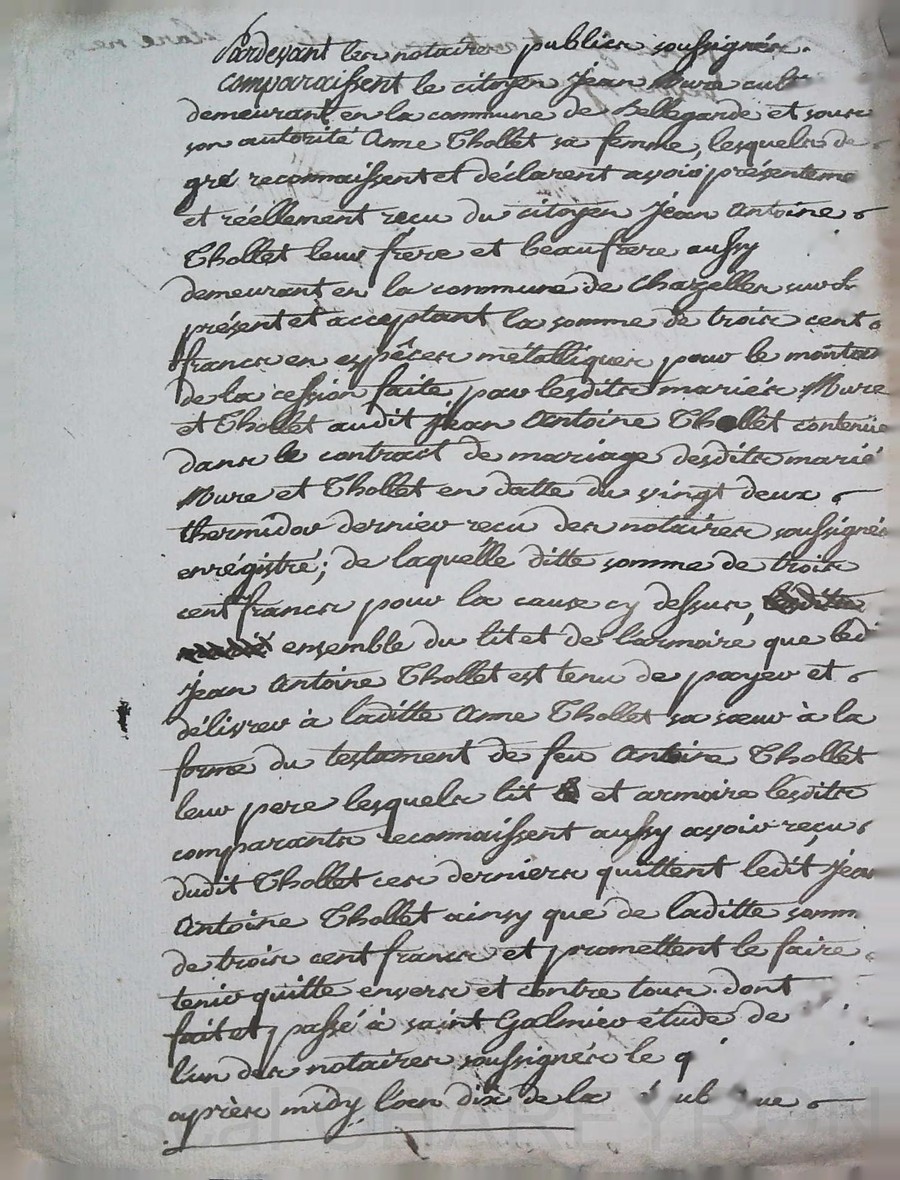 Pardevant les notaires publics soussignés.
Comparaissent le citoyen Jean Mure cult
demeurant en la commune de Bellegarde et sous
son autorité Anne Thollet sa femme, lesquels de
gré reconnaissent et déclarent avoir présenteme
et réellement reçu du citoyen Jean Antoine
Thollet leur frere et beaufrere aussy
demeurant en la commune de Chazelles sur
présent et acceptant la somme de trois cent
francs en espêces métalliques pour le montan
de la cession faite par lesdits mariés Mure
et Thollet audit Jean Antoine Thollet contenüe
dans le contract de mariage desdits marié
Mure et Thollet en datte du vingt deux
thermidor dernier recu des notaires soussignés
enrégistré; de laquélle ditte somme de trois
cent francs pour la cause cy dessus,
ensemble du lit et de l'armoire que led
Jean Antoine Thollet est tenu de payer et
délivrer à laditte Anne Thollet sa sœur à la
forme du testament de feu Antoine Thollet
leur pere lesquels lit et armoire lesdits
comparants reconnaissent aussy avoir reçu
dudit Thollet ces derniers quittent ledit Jean
Antoine Thollet ainsy que de laditte somm
de trois cent francs et promettent le faire
tenir quitte envers et contre tous. dont
fait et passé à saint Galmier étude de
l'un des notaires soussignés le
après midy l'an dix de la